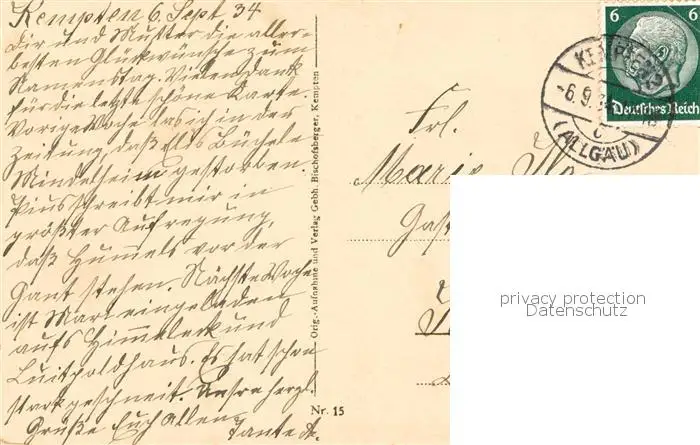 Kempten 6. Sept. 34
Dir und Mutter die aller-
besten Glückwünsche zum
Namenstag. Vielen Dank
für die letzte schöne Karte.
Vorige Woche las ich in der
Zeitung, daß Büchele
Mindelheim gestorben.
Pius schreibt mir in
größter Aufregung,
daß Hummels vor der
Gant stehen. Nächste Woche
ist Mari eingeladen
aufs Himmeleck und
Luitpoldhaus. Es hat schon
stark geschneit. Unsre herzl.
Grüße Euch Allen
Tante A.
Orig.-Aufnahme und Verlag Gebh. Bischofsberger, Kempten
Nr. 15
Frl.
Marie
Gast
6 6
Deutsches Reich
-6.9.34
(ALLGÄU)
privacy protection
Datenschutz